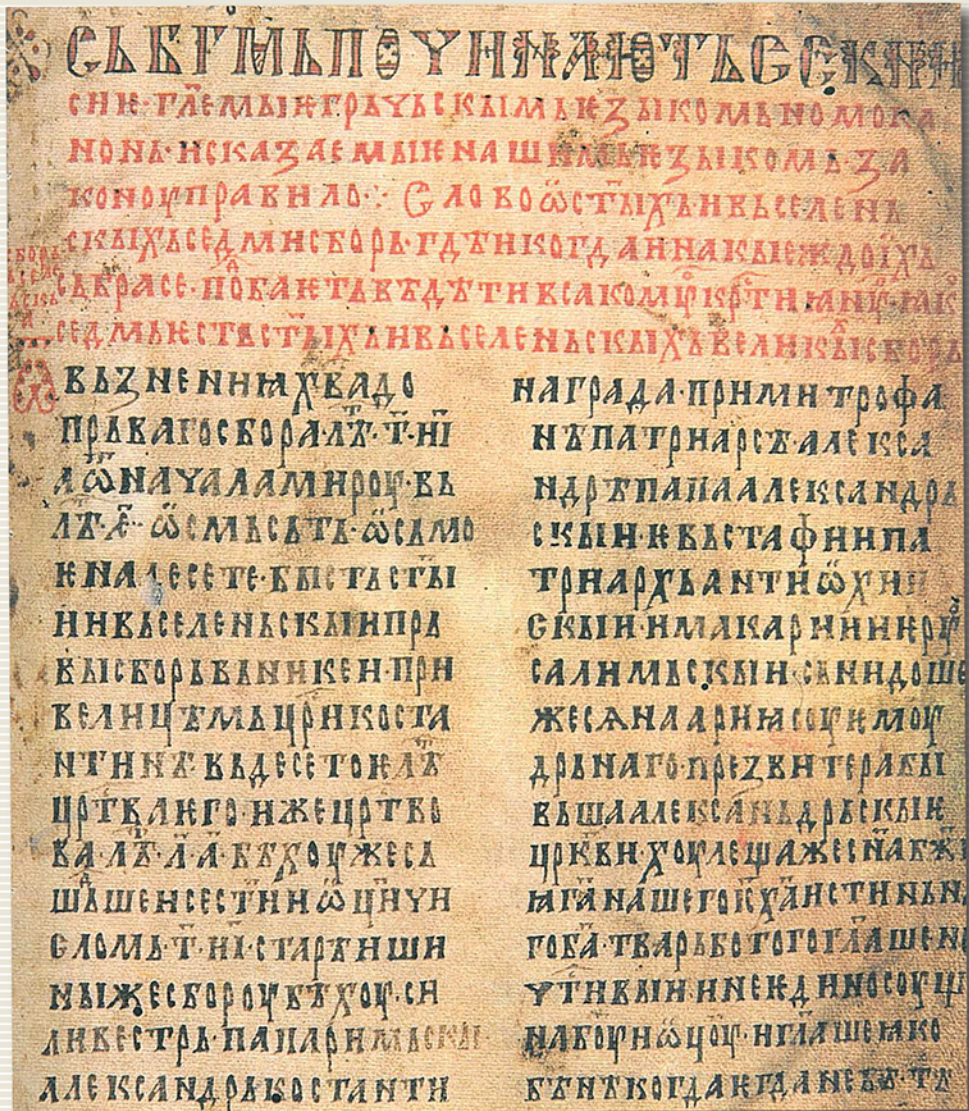 СЬ БГ҃МЬ ПОЧИНАЮТЬ СЕ КНИ
СИЕ· ГЛ҃ЕМЫѤ ГРЬЧЬСКЫМЬ ѤЗЫКОМЬ НОМОКА
НОНЬ· И СКАЗАЕМЫѤ НАШИМЬ ѤЗЫКОМЬ· ЗА
КОНОУ ПРАВИЛО ·:· СЛОВО Ѡ СТ҃ЫХЬ И ВЬСЕЛЕНЬ
СКЫХЬ СЕДМИ СБОРЬ· ГДѢ И КОГДА И НА КЫЕЖДО ЇХЬ
СЬБРАСЕ· ПОⷣБАЕТЬ ВѢДѢТИ ВСАКОМꙊ КРⷭТИꙖНИꙊ· ꙖКⷪ
СЕДМЬ ЕСТЬ СТ҃ЫХЬ И ВЬСЕЛЕНЬСКЫХЬ ВЕЛИКЫⷯ СБОРЬ
Ѿ ВЬЗНЕНИꙖ ХВ҃А ДО
ПРЬВАГО СБОРА ЛѢⷮ· Т҃· И҃І
А Ѿ НАЧАЛА МИРОУ· ВЬ
ЛѢⷮ· Е҃· ѠСМЬСЬТЬ· ѠСМО
Ѥ НАДЕСЕТЕ· БЫСТЬ СТ҃Ы
И И ВЬСЕЛЕНЬСКЫИ ПРЬ
ВЫ СБОРЬ ВЬ НИКЕИ· ПРИ
ВЕЛИЦѢМЬ ЦР҃И КОСТА
НТИНѢ· ВЬ ДЕСЕТОѤ ЛѢⷮ
ЦРⷭТВА ѤГО· ИЖЕ ЦРⷭТВО
ВА· ЛѢⷮ· Л҃· А҃· БѢХОУ ЖЕ СЬ
ШЬⷣШЕИ СЕ СТ҃ИИ ѠЦ҃И ЧИ
СЛОМЬ· Т҃· И҃І· СТАРѢИШИ
НЫ ЖЕ СБОРОУ БѢХОУ· СИ
ЛИВЕСТРЬ· ПАПА РИМЬСКЫ
АЛЕКСАНДРЬ КОСТАНТИ
НАГРАДА· ПРИ МИТРОФА
НѢ ПАТРИАРСѢ· АЛЕКСА
НДРѢ ПАПА АЛЕКСАНДРЬ
СКЫИ· ѤВЬСТАФИИ ПА
ТРИАРХЬ АНТИѠХИИ
СКЫИ· И МАКАРИИ ИѤРꙊ
САЛИМЬСКЫИ· СЬНИДОШЕ
ЖЕ СЯ НА АРИꙖ СОУЕМОУ
ДРЬНАГО· ПРЕЗВИТЕРА БЫ
ВЬША АЛЕКСАНЬДРЬСКЫѤ
ЦРК҃ВИ· ХОУЛЕЩА ЖЕ СН҃А БЖ҃И
ꙖГ҃А НАШЕГО ІС҃ Х҃А ИСТИНЬНА
ГО Б҃А· ТВАРЬ БО ТОГО ГЛ҃АШЕ НЕ
ЧТⷭИВЫИ· И НЕ ЕДИНОСОУЩ
НА Б҃ОУ И ѠЦ҃ОУ· И ГЛ҃АШЕ ꙖКО
БѢ НѢКОГДА ЕГДА НЕ БѢ· ТѢ